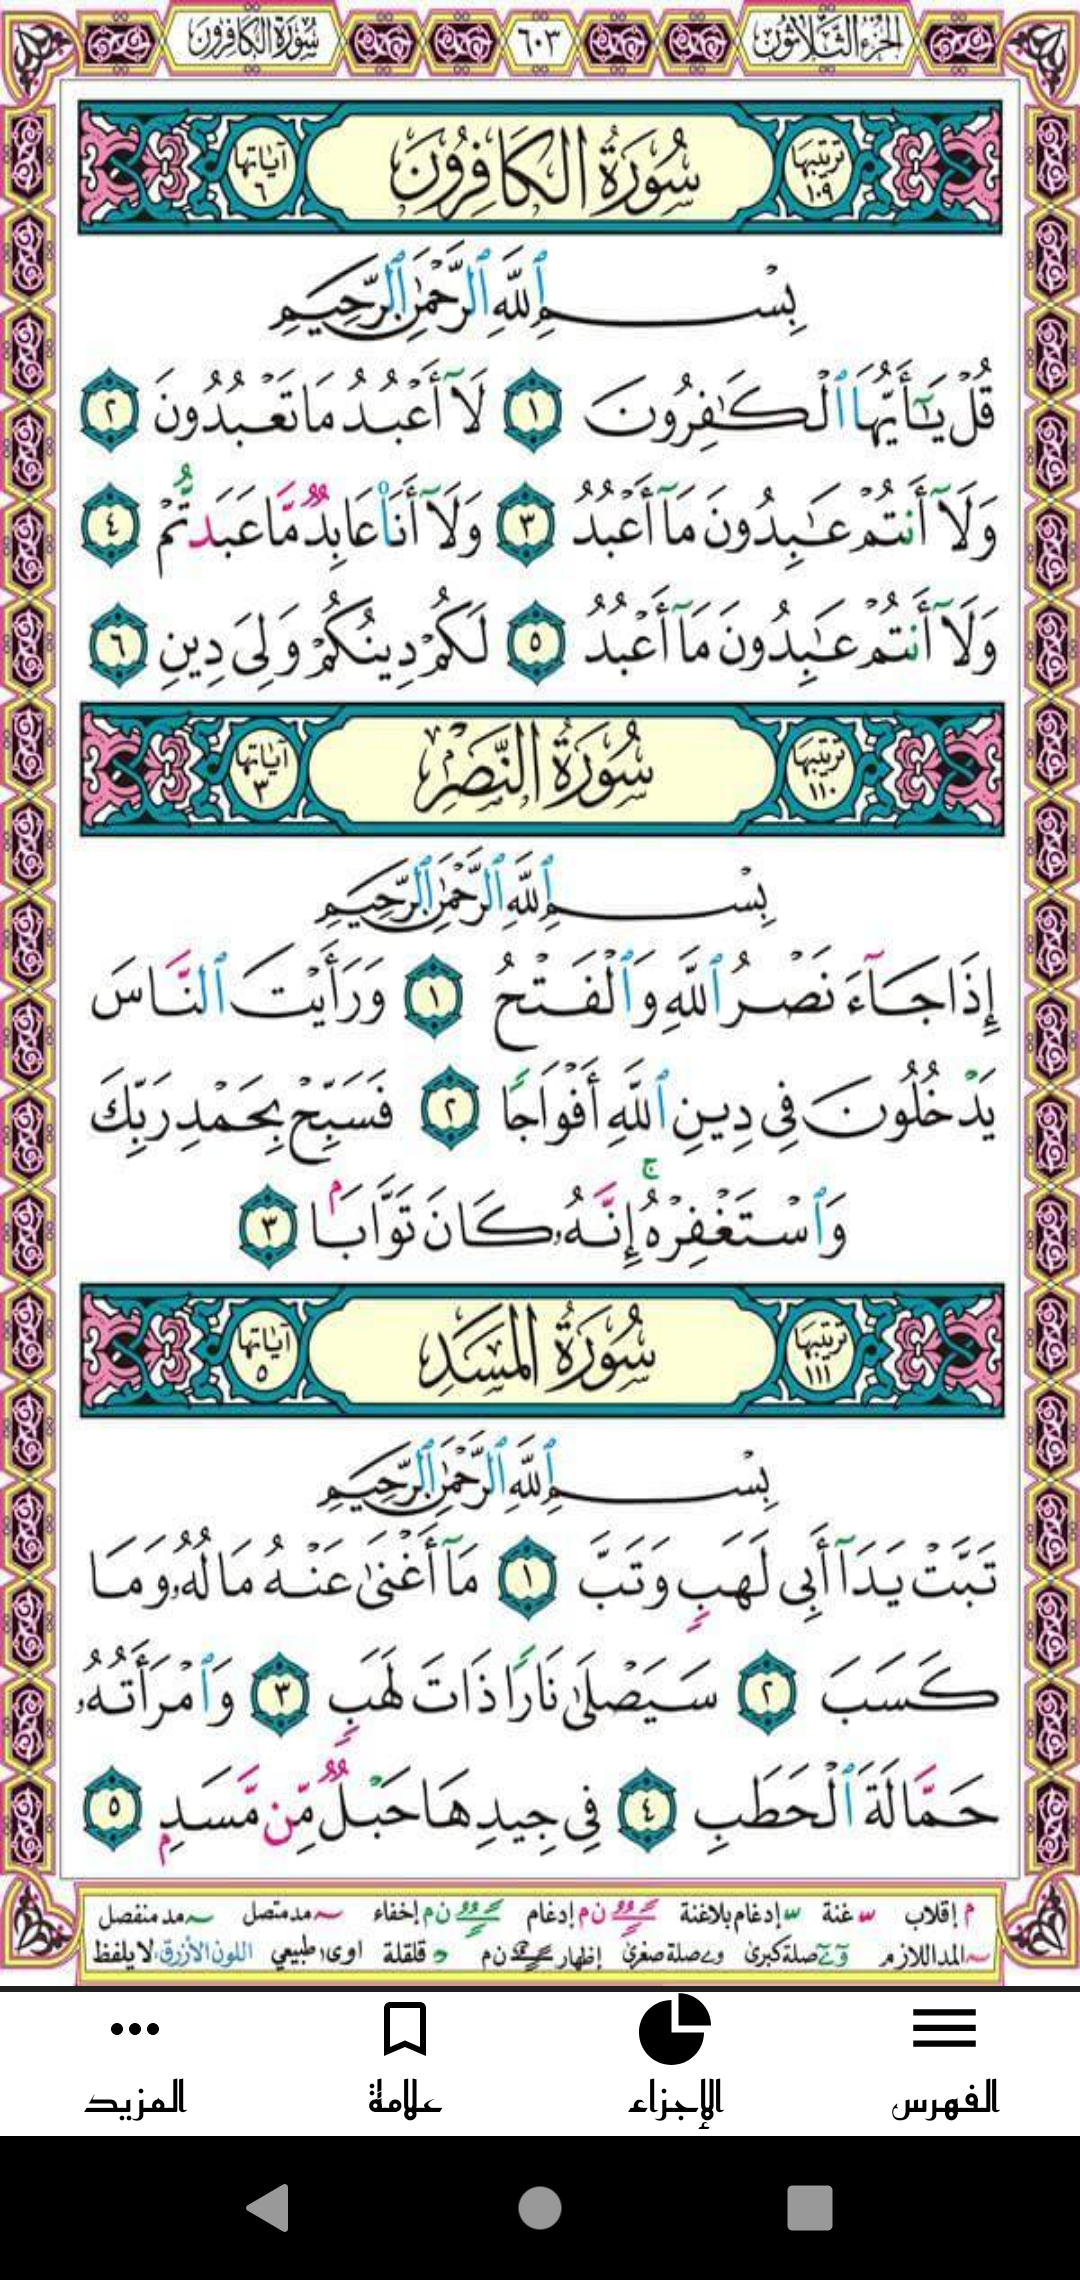 الجزء الثلاثون ٦٠٣ سورة الكافرون
ترتيبها ١٠٩ سُورَةُ الكَافِرُونَ آياتها ٦
بِسْمِ ٱللَّهِ ٱلرَّحْمَٰنِ ٱلرَّحِيمِ
قُلْ يَٰٓأَيُّهَا ٱلْكَٰفِرُونَ ١ لَآ أَعْبُدُ مَا تَعْبُدُونَ ٢
وَلَآ أَنتُمْ عَٰبِدُونَ مَآ أَعْبُدُ ٣ وَلَآ أَنَا۠ عَابِدٌ مَّا عَبَدتُّمْ ٤
وَلَآ أَنتُمْ عَٰبِدُونَ مَآ أَعْبُدُ ٥ لَكُمْ دِينُكُمْ وَلِىَ دِينِ ٦
ترتيبها ١١٠ سُورَةُ النَّصْرِ آياتها ٣
بِسْمِ ٱللَّهِ ٱلرَّحْمَٰنِ ٱلرَّحِيمِ
إِذَا جَآءَ نَصْرُ ٱللَّهِ وَٱلْفَتْحُ ١ وَرَأَيْتَ ٱلنَّاسَ
يَدْخُلُونَ فِى دِينِ ٱللَّهِ أَفْوَاجًا ٢ فَسَبِّحْ بِحَمْدِ رَبِّكَ
وَٱسْتَغْفِرْهُ ۚ إِنَّهُۥ كَانَ تَوَّابَۢا ٣
ترتيبها ١١١ سُورَةُ المَسَدِ آياتها ٥
بِسْمِ ٱللَّهِ ٱلرَّحْمَٰنِ ٱلرَّحِيمِ
تَبَّتْ يَدَآ أَبِى لَهَبٍ وَتَبَّ ١ مَآ أَغْنَىٰ عَنْهُ مَالُهُۥ وَمَا
كَسَبَ ٢ سَيَصْلَىٰ نَارًا ذَاتَ لَهَبٍ ٣ وَٱمْرَأَتُهُۥ
حَمَّالَةَ ٱلْحَطَبِ ٤ فِى جِيدِهَا حَبْلٌ مِّن مَّسَدٍۭ ٥
م إقلاب غنة إدغام بلاغنة ن م إدغام ن م إخفاء مد متصل مد منفصل
المد اللازم صلة كبرى صلة صغرى إظهار ن م قلقلة اوى طبيعي اللون الأزرق لا يلفظ
الفهرس الإجزاء علامة المزيد